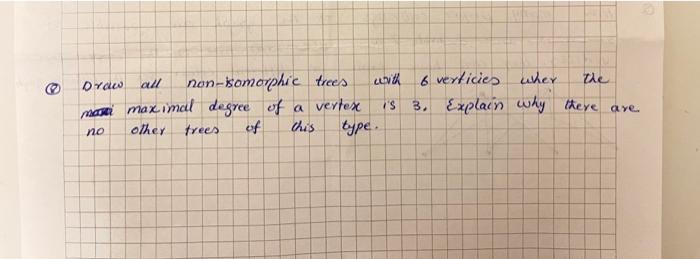 ⑧ Draw all non-isomorphic trees with 6 verticies wher the
maximal degree of a vertex is 3. Explain why there are
no other trees of this type.